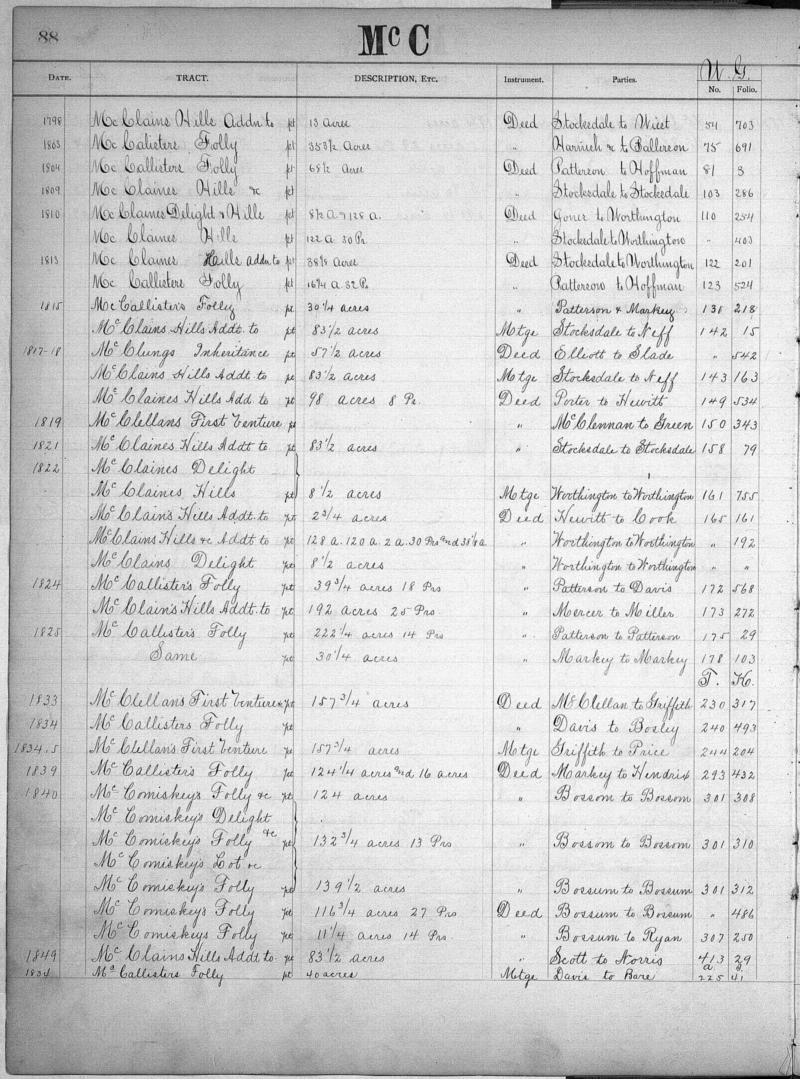 88
McC
DATE. TRACT. DESCRIPTION, ETC. Instrument. Parties. W. G. No. Folio.
1798 McClains Hills Addn to pt 13 Acres Deed Stocksdale to Wiest 54 703
1803 McCalisters Folly pt 353½ Acres " to Patterson 75 691
1804 McCallisters Folly pt 68½ Acres Deed Patterson to Hoffman 81 3
1809 McClaines Hills &c pt " Stocksdale to Stocksdale 103 286
1810 McClaines Delight & Hills pt 8½ A & 128 A. Deed to Worthington 110 254
McClaines Hills pt 122 A 30 Ps. " Stocksdale to Worthington " 403
1813 McClaines Hills addn to pt 38⅝ Acres Deed Stocksdale to Worthington 122 201
McCallisters Folly pt 16¾ A 32 Ps " Patterson to Hoffman 123 524
1815 McCallister's Folly pt 30¼ acres " Patterson & Markey 131 218
McClains Hills Addt. to pt 83½ acres Mtge Stocksdale to Neff 142 15
1817-18 McClungs Inheritance pt 57½ acres Deed Elliott to Slade " 542
McClains Hills Addt. to pt 83½ acres Mtge Stocksdale to Neff 143 163
McClaines Hills Add to pt 98 acres 8 Ps Deed Porter to Hewitt 149 534
1819 McClellans First Venture pt " McClennan to Green 150 343
1821 McClaines Hills Addt to pt 83½ acres " Stocksdale to Stocksdale 158 79
1822 McClaines Delight
McClaines Hills pt 8½ acres Mtge Worthington to Worthington 161 755
McClain's Hills Addt. to pt 2¾ acres Deed Hewitt to Cook 165 161
McClains Hills &c Addt to pt 128 a. 120 a. 2 a. 30 Prs and 38⅛ a " Worthington to Worthington " 192
McClains Delight pt 8½ acres " Worthington to Worthington " "
1824 McCallister's Folly pt 39¾ acres 18 Prs " Patterson to Davis 172 568
McClain's Hills Addt. to pt 192 acres 25 Prs " Mercer to Miller 173 272
1825 McCallister's Folly pt 222¼ acres 14 Prs " Patterson to Patterson 175 29
Same pt 30¼ acres " Markey to Markey 178 103
T. K.
1833 McClellans First Venture pt 157¾ acres Deed McClellan to Griffith 230 317
1834 McCallisters Folly pt " Davis to Bosley 240 493
1834.5 McClellan's First Venture pt 157¾ acres Mtge Griffith to Price 244 204
1839 McCallister's Folly pt 124¼ acres and 16 acres Deed Markey to Hendrix 293 432
1840 McComiskey's Folly &c pt 124 acres " Bossom to Bossom 301 308
McComiskey's Delight
McComiskey's Folly &c pt 132¾ acres 13 Prs " Bossom to Bossom 301 310
McComiskey's Lot &c
McComiskey's Folly pt 139½ acres " Bossum to Bossum 301 312
McComiskey's Folly pt 116¾ acres 27 Prs Deed Bossum to Bossum " 486
McComiskeys Folly pt 11¼ acres 14 Prs " Bossum to Ryan 307 250
1849 McClains Hills Addt. to pt 83½ acres " Scott to Norris 413 29
1834 McCallisters Folly pt 40 acres Mtge Davis to Bare 225 41